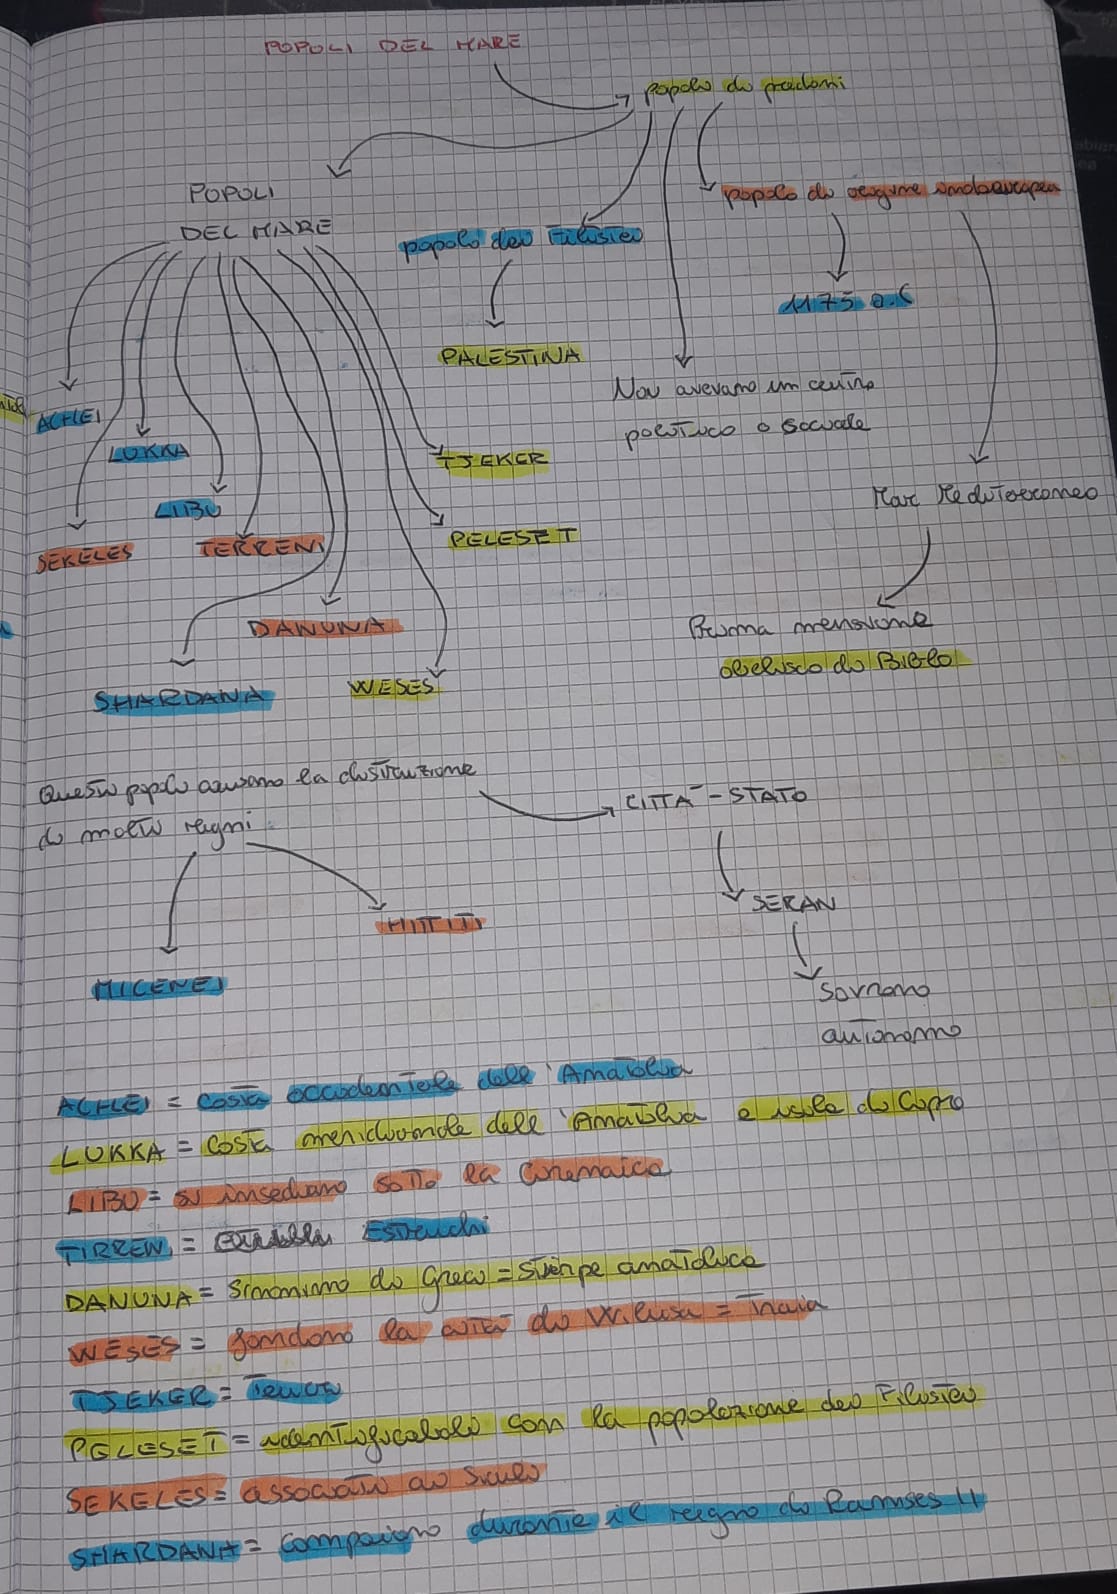 POPOLI DEL MARE
popolo di predoni
POPOLI
DEL MARE
popolo dei Filistei
popolo di origine indoeuropea
1175 a.C
PALESTINA
Non avevano un centro
politico o sociale
ACHEI
LUKKA
LIBU
SEKELES
TERRENI
TJEKER
PELESET
Mar Mediterraneo
DANUNA
SHARDANA
WESES
Prima menzione
obelisco di Biblo
Questi popoli causano la distruzione
di molti regni
CITTA' - STATO
HITTITI
SERAN
MICENEI
Sovrano
autonomo
ACHEI = costa occidentale dell'Anatolia
LUKKA = costa meridionale dell'Anatolia e isola di Cipro
LIBU = si insediano sotto la Cirenaica
TIRRENI = Etruschi
DANUNA = Sinonimo di Greco = stirpe anatolica
WESES = fondono la città di Wilusa = Troia
TJEKER = Teucri
PELESET = identificabili con la popolazione dei Filistei
SEKELES = associati ai Siculi
SHARDANA = compaiono durante il regno di Ramses II